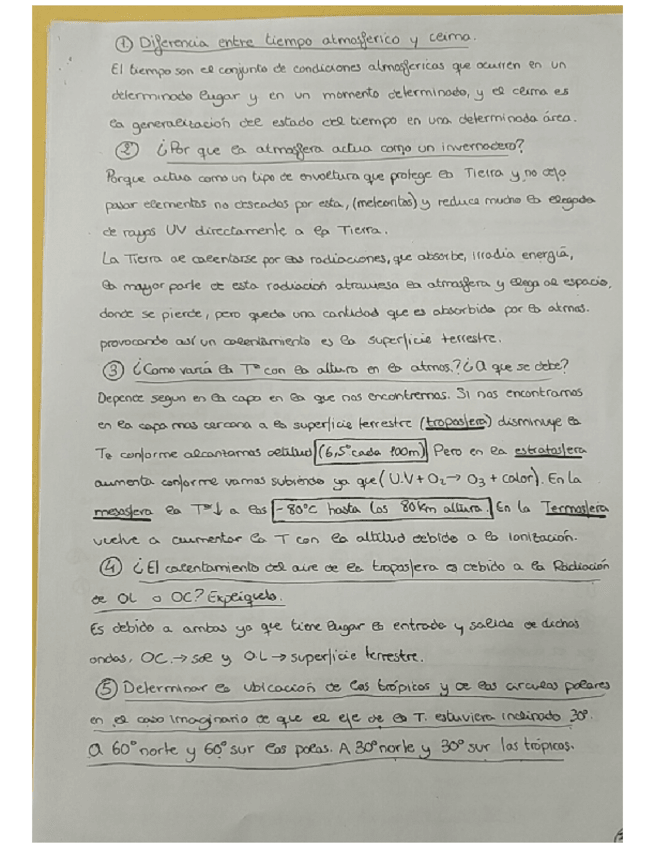 ① Diferencia entre tiempo atmosferico y clima.
El tiempo son el conjunto de condiciones atmosfericas que ocurren en un
determinado lugar y en un momento determinado, y el clima es
la generalización del estado del tiempo en una determinada área.
② ¿Por que la atmosfera actua como un invernadero?
Porque actua como un tipo de envoltura que protege la Tierra y no deja
pasar elementos no deseados por esta, (meteoritos) y reduce mucho la llegada
de rayos UV directamente a la Tierra.
La Tierra al calentarse por las radiaciones, que absorbe, irradia energía,
la mayor parte de esta radiación atraviesa la atmosfera y llega al espacio,
donde se pierde, pero queda una cantidad que es absorbida por la atmos.
provocando así un calentamiento es la superficie terrestre.
③ ¿Como varía la Tª con la altura en la atmos.? ¿A que se debe?
Depende segun en la capa en la que nos encontremos. Si nos encontramos
en la capa mas cercana a la superficie terrestre (troposfera) disminuye la
Tª conforme alcantamos altitud (6,5° cada 100m) Pero en la estratosfera
aumenta conforme vamos subiendo ya que (U.V + O₂ → O₃ + calor). En la
mesosfera la Tª↓ a los -80°C hasta los 80km altura. En la Termosfera
vuelve a aumentar la T con la altitud debido a la ionización.
④ ¿El calentamiento del aire de la troposfera es debido a la Radiación
de OL o OC? Explíquelo.
Es debido a ambas ya que tiene lugar la entrada y salida de dichas
ondas. OC → sol y OL → superficie terrestre.
⑤ Determinar la ubicacion de los trópicos y de los circulos polares
en el caso imaginario de que el eje de la T. estuviera inclinado 30°.
A 60° norte y 60° sur los polos. A 30° norte y 30° sur los trópicos.